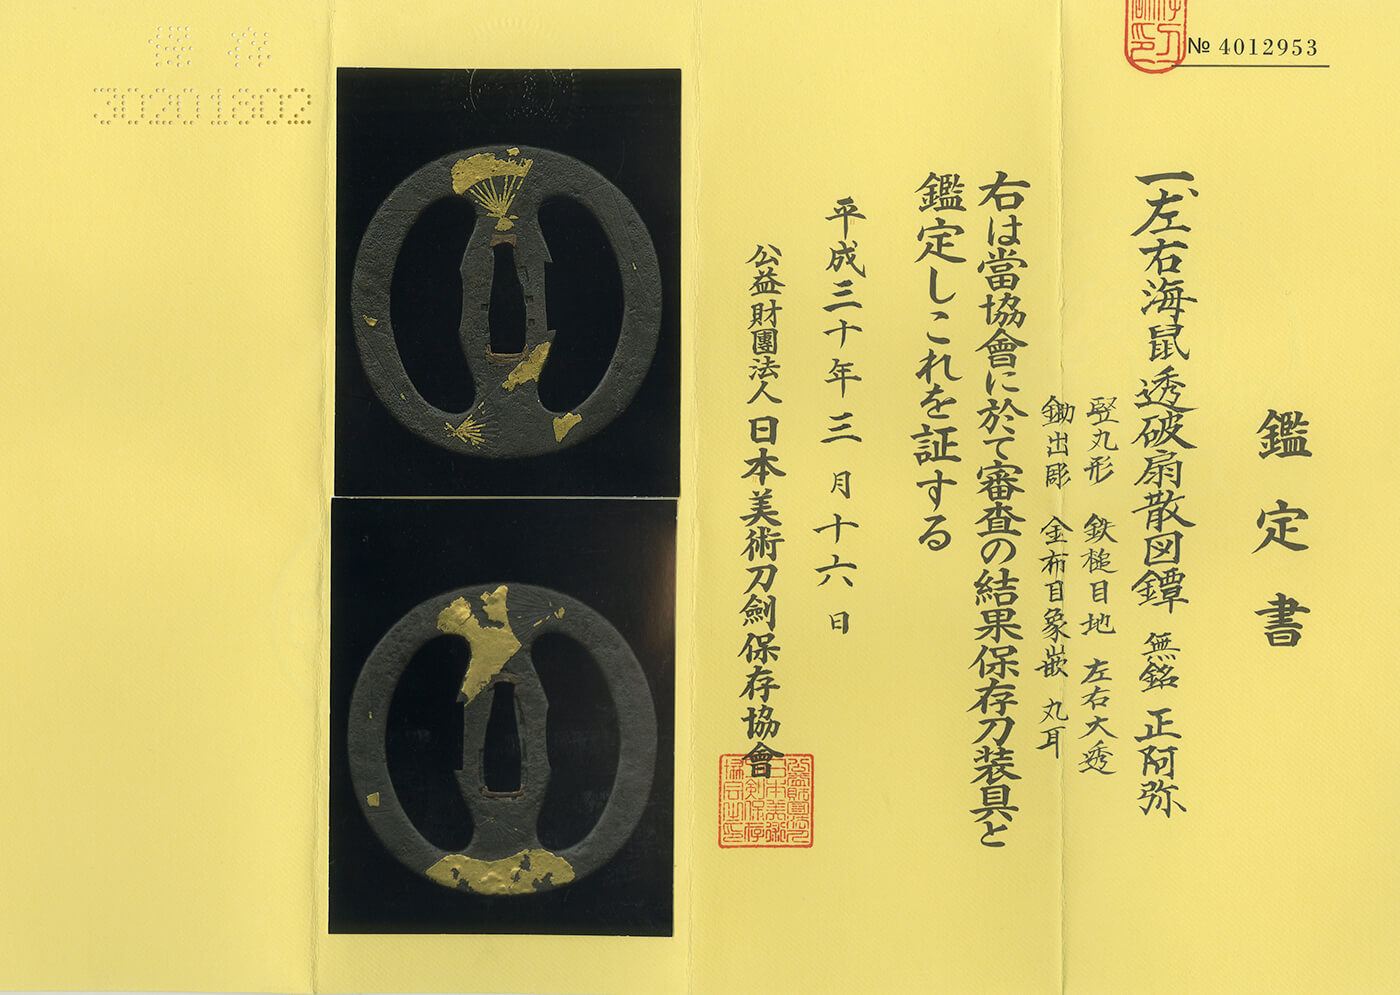 № 4012953
鑑定書
一、左右海鼠透破扇散図鐔 無銘 正阿弥
竪丸形 鉄槌目地 左右大透
鋤出彫 金布目象嵌 丸耳
右は當協會に於て審査の結果保存刀装具と
鑑定しこれを証する
平成三十年三月十六日
公益財團法人 日本美術刀劍保存協會
保存
30201602